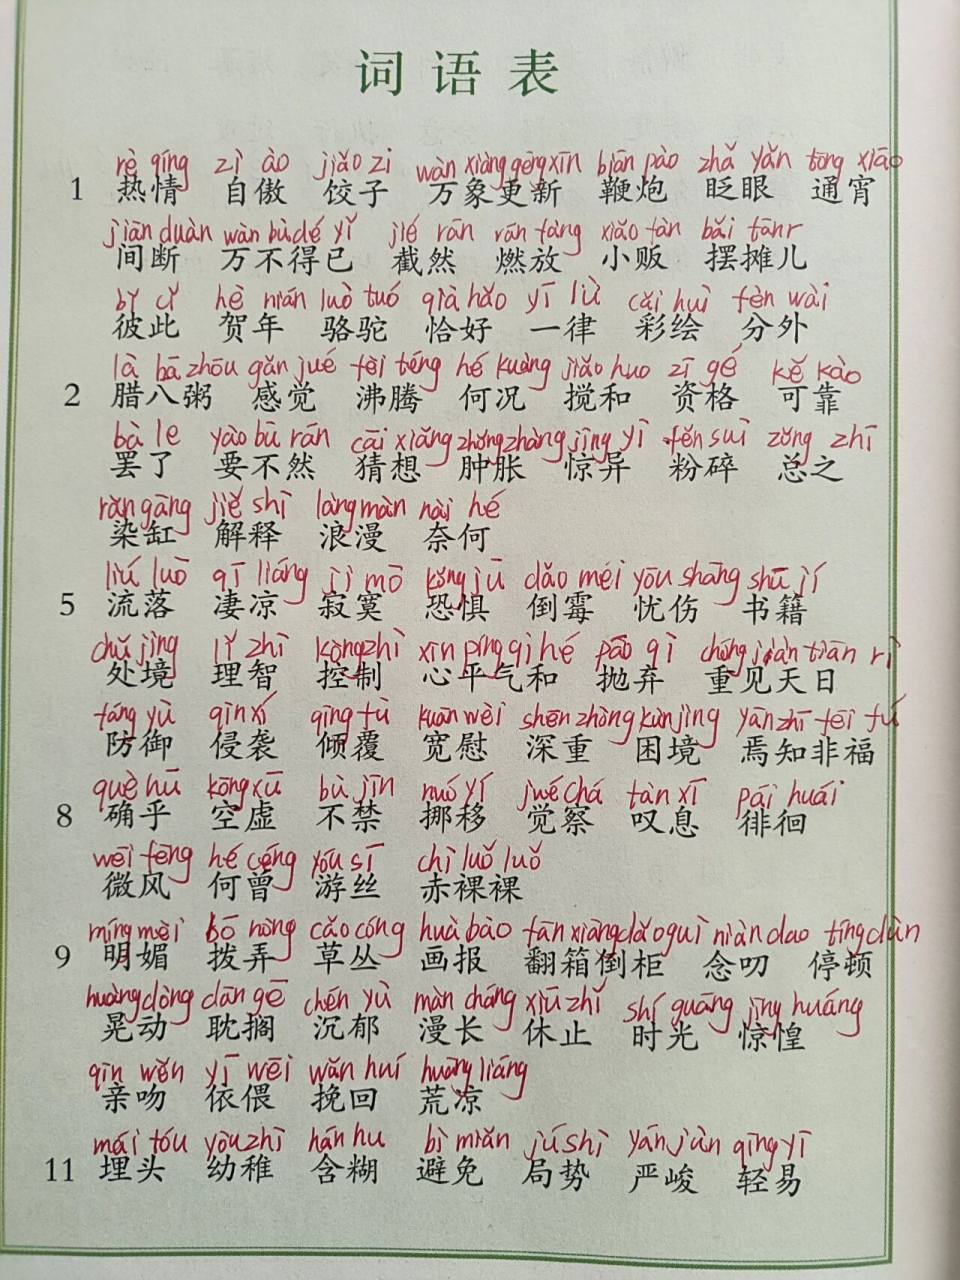 词语表
rè qíng zì ào jiǎo zi wàn xiàng gēng xīn biān pào zhǎ yǎn tōng xiāo
1 热情 自傲 饺子 万象更新 鞭炮 眨眼 通宵
jiān duàn wàn bù dé yǐ jié rán rán fàng xiǎo fàn bǎi tānr
间断 万不得已 截然 燃放 小贩 摆摊儿
bǐ cǐ hè nián luò tuó qià hǎo yī lǜ cǎi huì fèn wài
彼此 贺年 骆驼 恰好 一律 彩绘 分外
là bā zhōu gǎn jué fèi téng hé kuàng jiǎo huo zī gé kě kào
2 腊八粥 感觉 沸腾 何况 搅和 资格 可靠
bà le yào bū rán cāi xiǎng zhǒng zhàng jīng yì fěn suì zǒng zhī
罢了 要不然 猜想 肿胀 惊异 粉碎 总之
rǎn gāng jiě shì làng màn nài hé
染缸 解释 浪漫 奈何
liú luò qī liáng jì mò kǒng jù dǎo méi yōu shāng shū jí
5 流落 凄凉 寂寞 恐惧 倒霉 忧伤 书籍
chǔ jìng lǐ zhì kòng zhì xīn píng qì hé pāo qì chóng jiàn tiān rì
处境 理智 控制 心平气和 抛弃 重见天日
fáng yù qīn xí qīng fù kuān wèi shēn zhòng kùn jìng yān zhī fēi fú
防御 侵袭 倾覆 宽慰 深重 困境 焉知非福
què hū kōng xū bù jīn nuó yí jué chá tàn xī pái huái
8 确乎 空虚 不禁 挪移 觉察 叹息 徘徊
wēi fēng hé céng yóu sī chì luǒ luǒ
微风 何曾 游丝 赤裸裸
míng mèi bō nòng cǎo cóng huà bào fān xiāng dǎo guì niàn dao tíng dùn
9 明媚 拨弄 草丛 画报 翻箱倒柜 念叨 停顿
huàng dòng dān gē chén yù màn cháng xiū zhǐ shí guāng jīng huáng
晃动 耽搁 沉郁 漫长 休止 时光 惊惶
qīn wěn yī wēi wǎn huí huāng liáng
亲吻 依偎 挽回 荒凉
mái tóu yòu zhì hán hu bì miǎn jú shì yán jùn qīng yì
11 埋头 幼稚 含糊 避免 局势 严峻 轻易